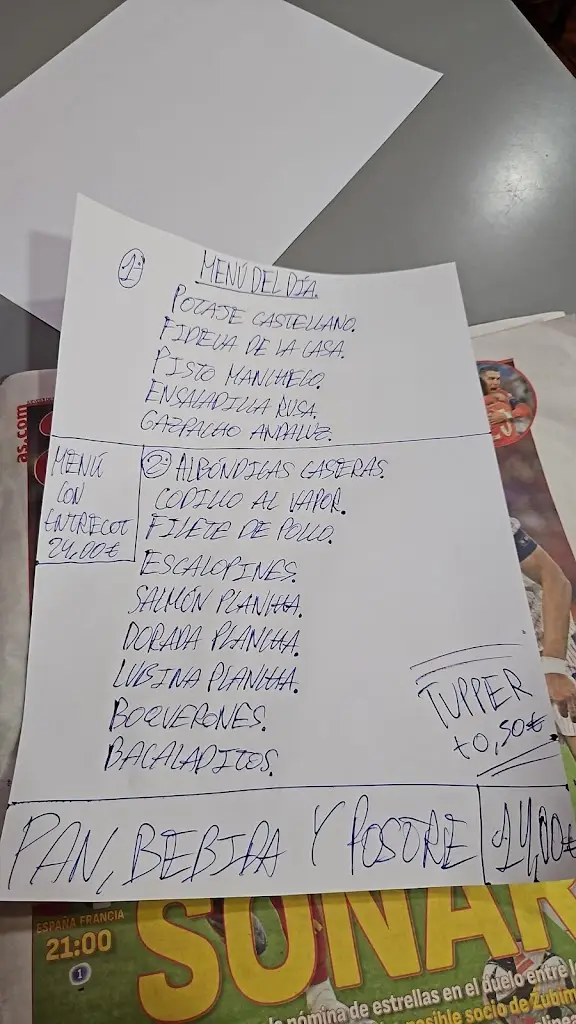 1º MENÚ DEL DÍA.
POTAJE CASTELLANO.
FIDEUA DE LA CASA.
PISTO MANCHEGO.
ENSALADILLA RUSA.
GAZPACHO ANDALUZ.
MENÚ
CON
ENTRECOT
24,00€
2º ALBÓNDIGAS CASERAS.
CODILLO AL VAPOR.
FILETE DE POLLO.
ESCALOPINES.
SALMÓN PLANCHA.
DORADA PLANCHA.
LUBINA PLANCHA.
BOQUERONES.
BACALADITOS.
TUPPER
+0,50€
PAN, BEBIDA Y POSTRE 14,00€
as.com
20
ESPAÑA FRANCIA
21:00
1
SONAR
nómina de estrellas en el duelo entre
posible socio de Zubim